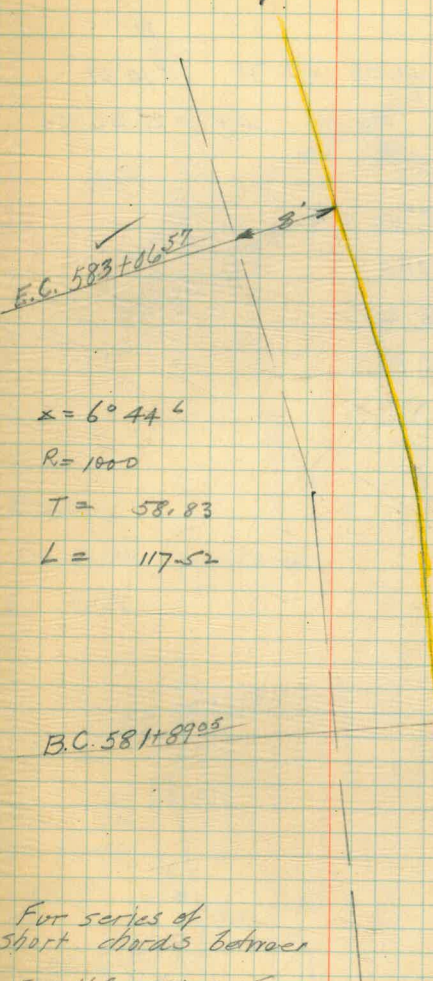 8'
E.C. 583+06⁵⁷
x = 6° 44' L
R = 1000
T = 58.83
L = 117.52
B.C. 581+89⁰⁵
For series of
short chords between